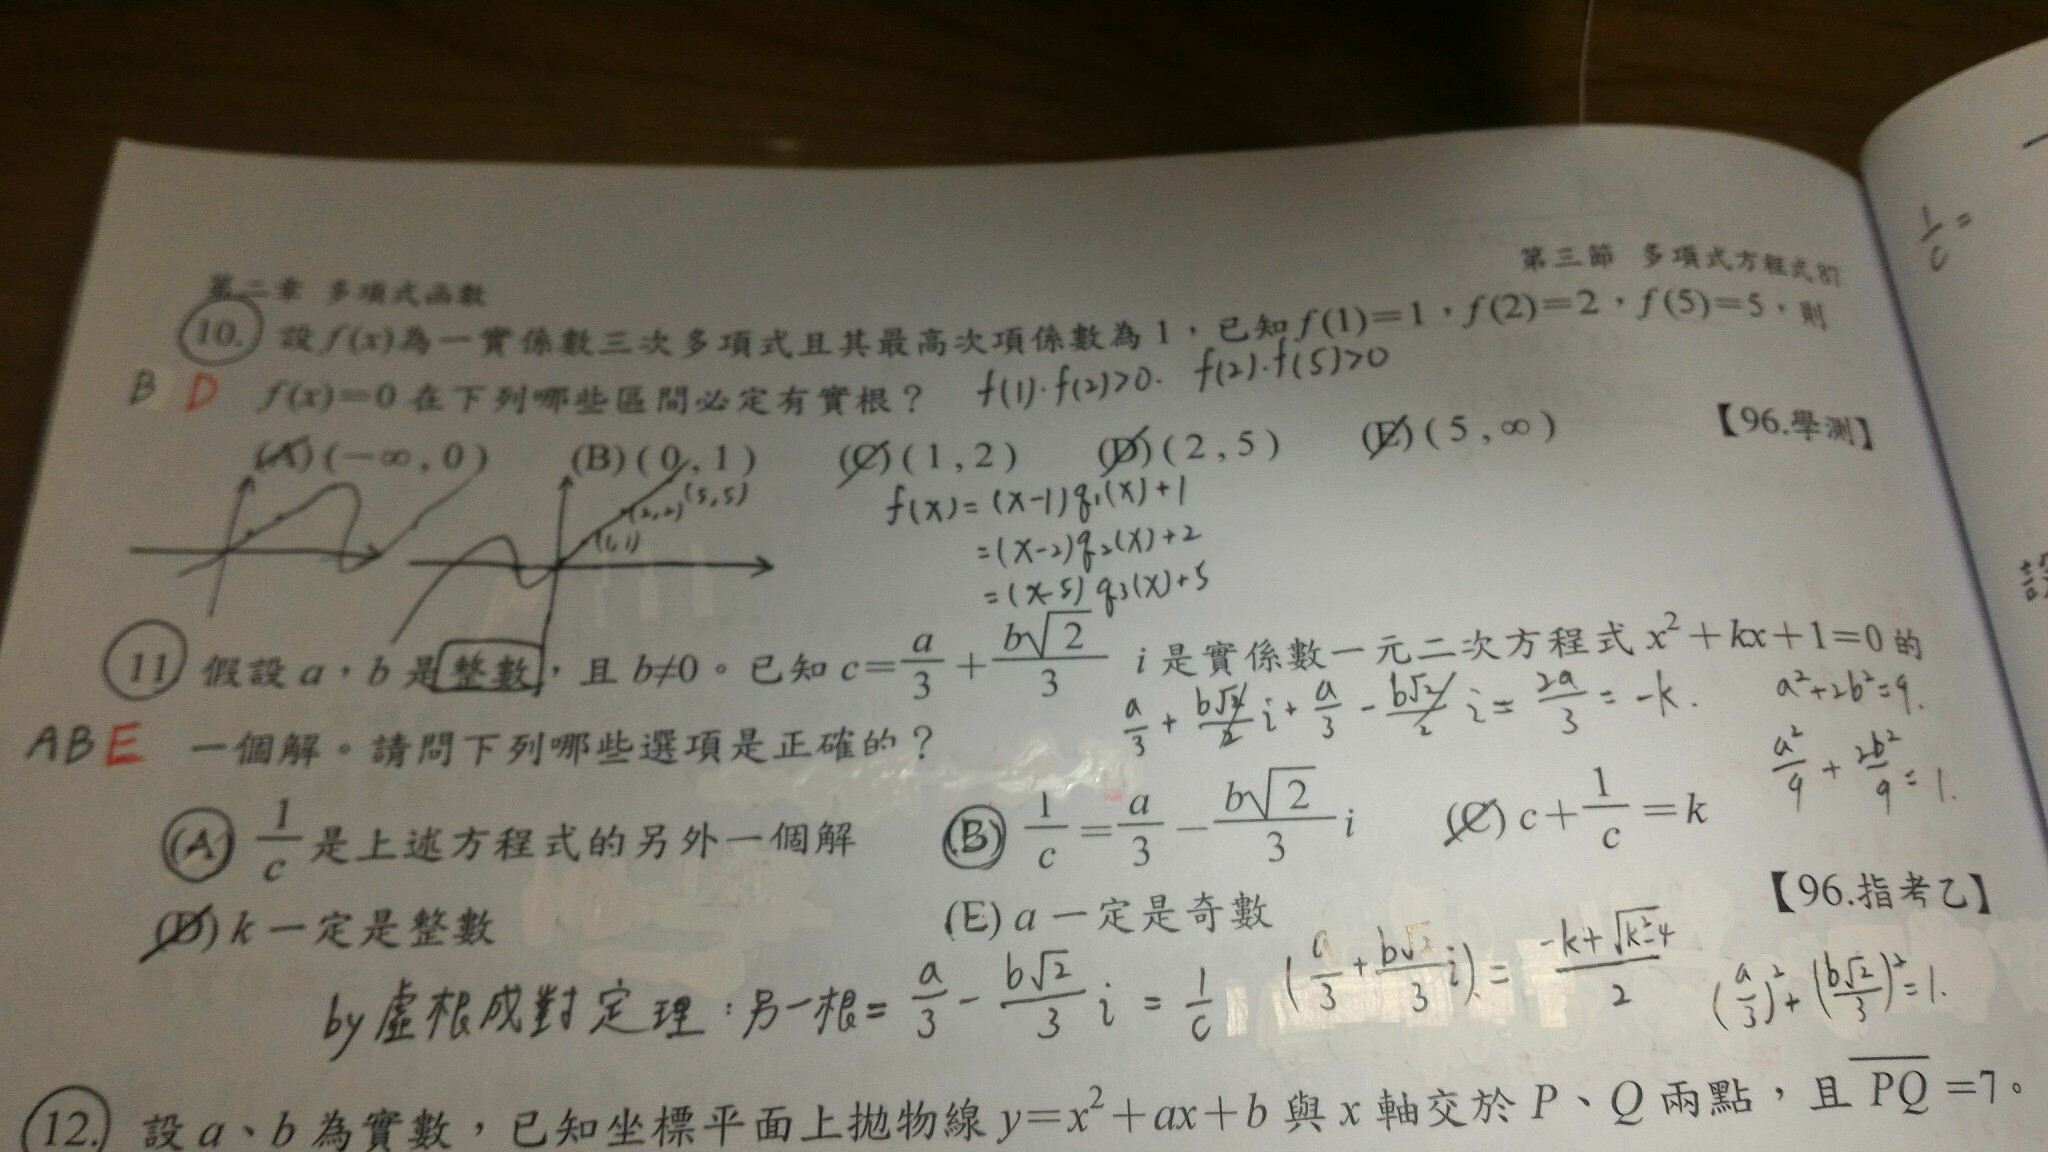 第三節 多項式方程式 87
第二章 多項式函數
10. 設 f(x)為一實係數三次多項式且其最高次項係數為 1，已知 f(1)=1，f(2)=2，f(5)=5，則
B D f(x)=0 在下列哪些區間必定有實根？ f(1)·f(2)>0. f(2)·f(5)>0
(A)(-∞,0) (B)(0,1) (C)(1,2) (D)(2,5) (E)(5,∞) 【96.學測】
(1,1) (2,2) (5,5)
f(x)=(x-1)q₁(x)+1
=(x-2)q₂(x)+2
=(x-5)q₃(x)+5
11 假設 a，b 是整數，且 b≠0。已知 c=a/3+b√2/3 i 是實係數一元二次方程式 x²+kx+1=0 的
a/3+b√2/2 i+a/3-b√2/2 i=2a/3=-k.
a²+2b²=9.
a²/9+2b²/9=1.
ABE 一個解。請問下列哪些選項是正確的？
(A) 1/c 是上述方程式的另外一個解 (B) 1/c=a/3-b√2/3 i (C) c+1/c=k
(D) k 一定是整數 (E) a 一定是奇數 【96.指考乙】
by 虛根成對定理：另一根=a/3-b√2/3 i=1/c
(a/3+b√2/3 i)=-k+√k²-4/2
(a/3)²+(b√2/3)²=1.
12. 設 a、b 為實數，已知坐標平面上拋物線 y=x²+ax+b 與 x 軸交於 P、Q 兩點，且 PQ=7。
1/c=